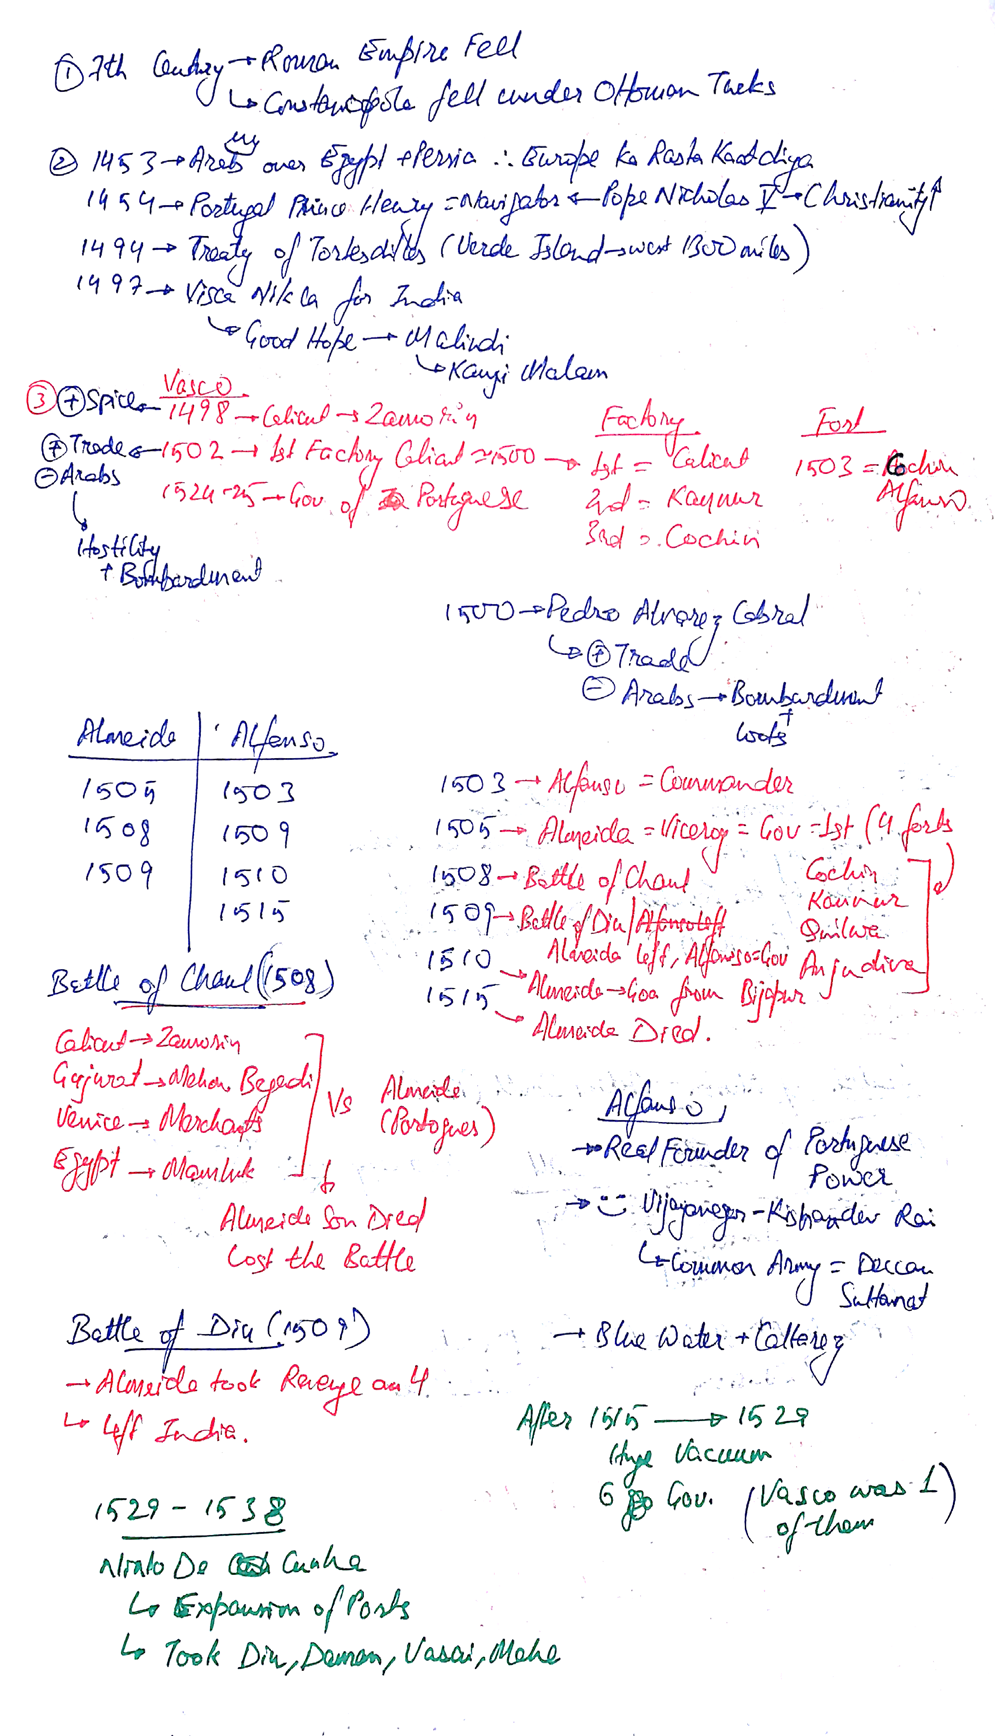 ① 7th Century → Roman Empire Fell
↳ Constanople fell under Ottoman Turks
② 1453 → Arab over Egypt + Persia ∴ Europe ka Rasta Kaat diya
1454 → Portugal Prince Henry = Navigator ← Pope Nicholas V → Christianity↑
1494 → Treaty of (Verde Island → west 1300 miles)
1497 → Nikla for India
↳ Good Hope → Malindi
↳ Kanji Malam
③ ⊕ Spice Vasco
1498 → Calicut → Zamorin
⊕ Trade ← 1502 → 1st Factory Calicut ≈ 1500 →
⊖ Arabs
1524-25 → Gov. of Portuguese
↳ Hostility
+ Bombardment
Factory
1st = Calicut
2nd = Kannur
3rd = Cochin
Fort
1503 = Cochin
Alfanso
1500 → Pedro Alvarez Cabral
↳ ⊕ Trade
⊖ Arabs → Bombardment
+
Loots
Almeida | Alfanso
1505 | 1503
1508 | 1509
1509 | 1510
1515
1503 → Alfanso = Commander
1505 → Almeida = Viceroy = Gov = 1st (4 forts
Cochin
Kannur
Quilwa
Anjudiva
1508 → Battle of Chaul
1509 → Battle of Diu / Alfanso left
Almeida left, Alfanso = Gov
1510 → Almeida → Goa from Bijapur
1515 → Almeida Died.
Battle of Chaul (1508)
Calicut → Zamorin
Gujurat → Begadi
Venice → Merchants
Egypt → Mamluk
Vs Almeida
(Portogues)
Almeida Son Died
Lost the Battle
Alfanso
→ Real Founder of Portuguese
Power
→ Vijaynagar - Rai
↳ Common Army = Deccan
Sultanat
→ Blue Water + Cattarez
Battle of Diu (1509)
→ Almeida took Revenge on 4
↳ left India.
After 1515 → 1529
Huge Vacuum
6 Gov. (Vasco was 1
of them)
1529 - 1538
De Cunha
↳ Expansion of Ports
↳ Took Diu, Daman, Vasai, Mahe